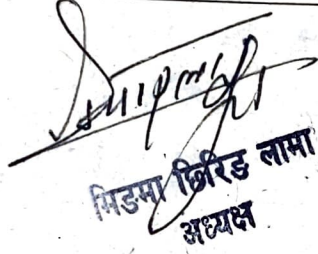 मिङमा छिरिङ लामा
अध्यक्ष